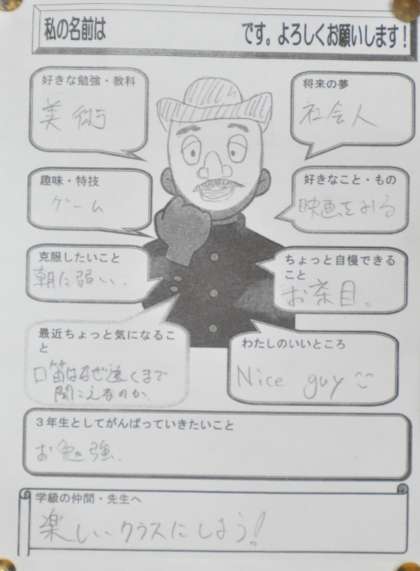 私の名前は です。よろしくお願いします！
好きな勉強・教科
美術
将来の夢
社会人
趣味・特技
ゲーム
好きなこと・もの
映画をみる
克服したいこと
朝に弱い、
ちょっと自慢できる
こと
お茶目。
最近ちょっと気になるこ
と
口笛はなぜ遠くまで
聞こえるのか
わたしのいいところ
Nice guy
３年生としてがんばっていきたいこと
お勉強、
学級の仲間・先生へ
楽しいクラスにしよう！